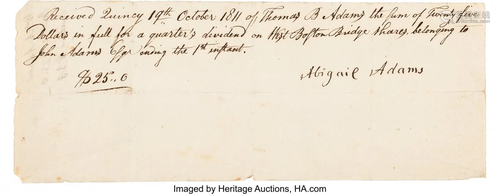 Received Quincy 19th October 1811 of Thomas B Adams the Sum of Twenty five
Dollars in full for a quarter's dividend on West Boston Bridge shares, belonging to
John Adams Esqr ending the 1st instant.
$25..0
Abigail Adams
Imaged by Heritage Auctions, HA.com